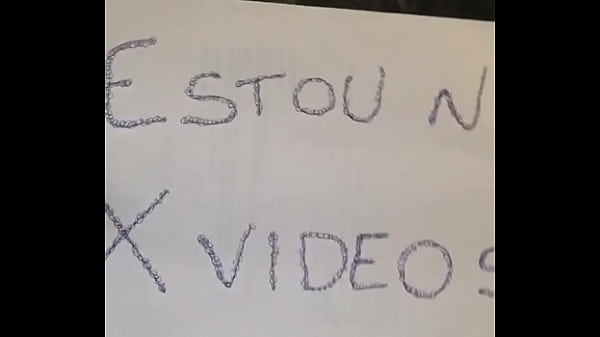 ESTOU N
X VIDEOS